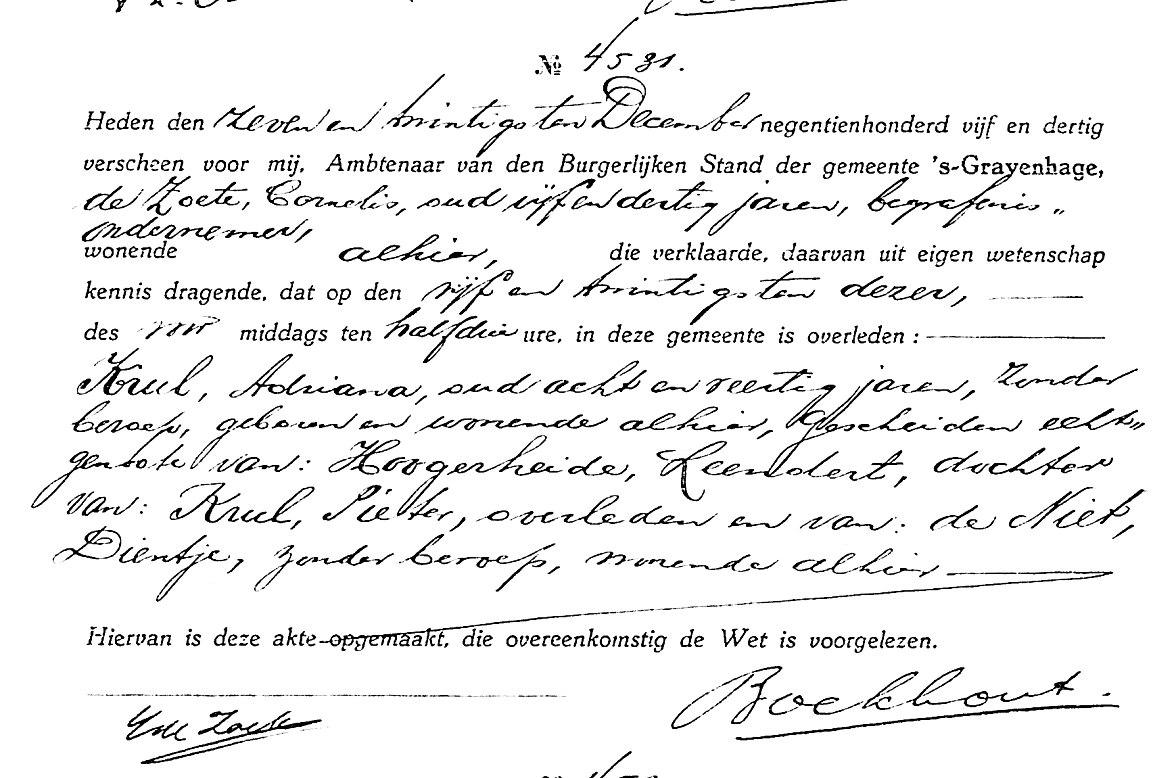 № 4531.
Heden den zeven en twintigsten December negentienhonderd vijf en dertig
verscheen voor mij, Ambtenaar van den Burgerlijken Stand der gemeente 's-Gravenhage,
de Zoete, Cornelis, oud vijf en dertig jaren, begrafenis„
ondernemer,
wonende alhier, die verklaarde, daarvan uit eigen wetenschap
kennis dragende, dat op den vijf en twintigsten dezer,
des voor middags ten half drie ure, in deze gemeente is overleden :
Krul, Adriana, oud acht en veertig jaren, zonder
beroep, geboren en wonende alhier, gescheiden echt„
genoote van: Hoogerheide, Leendert, dochter
van: Krul, Pieter, overleden en van: de Niet,
Dientje, zonder beroep, wonende alhier
Hiervan is deze akte opgemaakt, die overeenkomstig de Wet is voorgelezen.
Boekhout.
Zoete